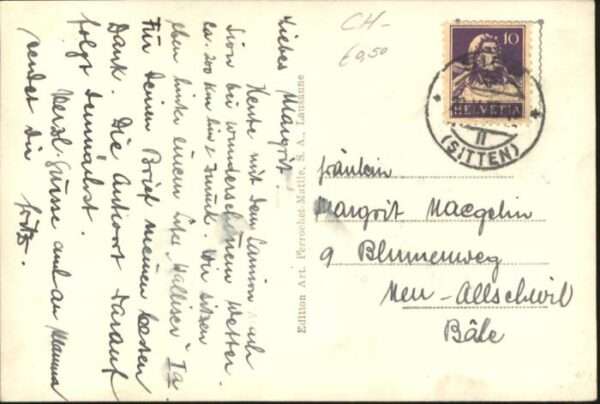 Liebes Margrit!
Heute mit dem Camion nach
Sion bei wunderschönem Wetter.
ca. 200 km hin & zurück. Wir sitzen
eben hinter einem Liter "Walliser" Ia.
Für deinen Brief meinen besten
Dank. Die Antwort darauf
folgt demnächst.
Herzl. Grüsse auch an Mamma
sendet Dir Fritz.
Edition Art. Perrochet-Matile, S. A., Lausanne
CH-
€ 9,50
10
HELVETIA
II
(SITTEN)
Fräulein
Margrit Naegelin
9 Blumenweg
Neu-Allschwil
Bâle